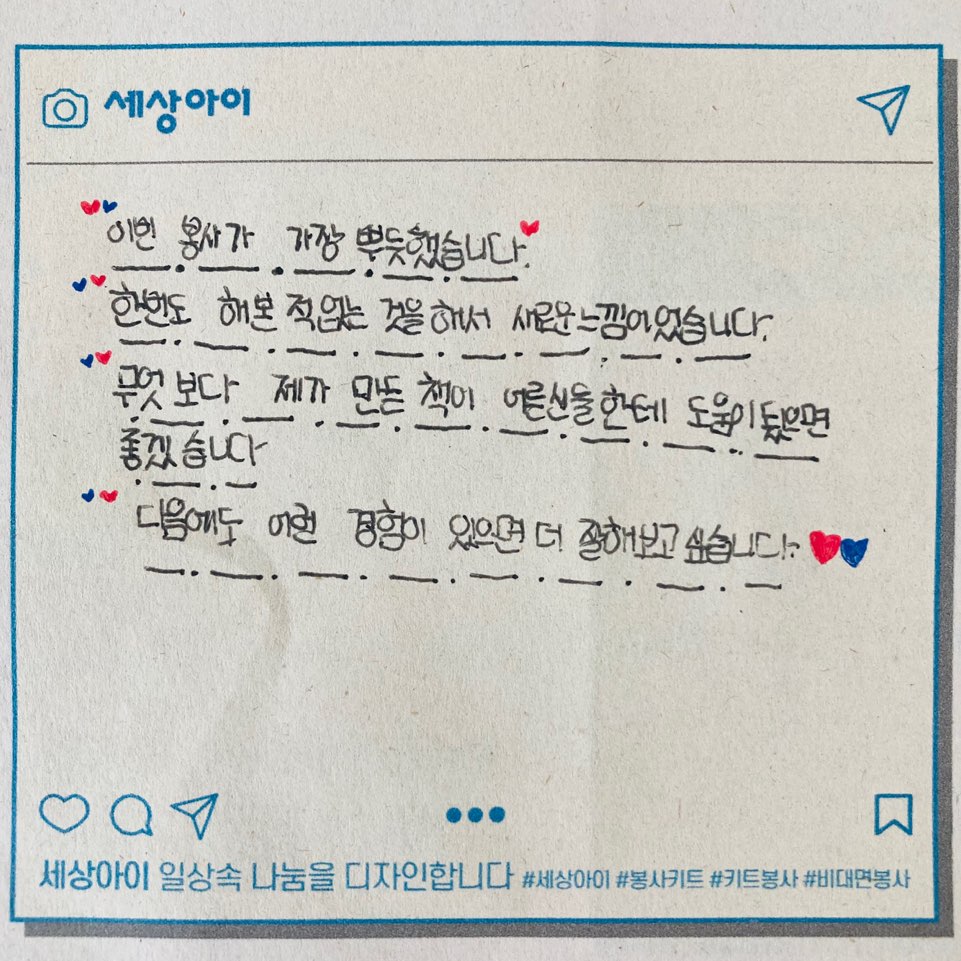 세상아이
이번 봉사가 가장 뿌듯했습니다.
한번도 해본 적없는 것을 해서 새로운느낌이었습니다.
무엇 보다 제가 만든 책이 어른신들한테 도움이 됬으면
좋겠습니다
다음에도 이런 경험이 있으면 더 잘해보고 싶습니다.
세상아이 일상속 나눔을 디자인합니다 #세상아이 #봉사키트 #키트봉사 #비대면봉사